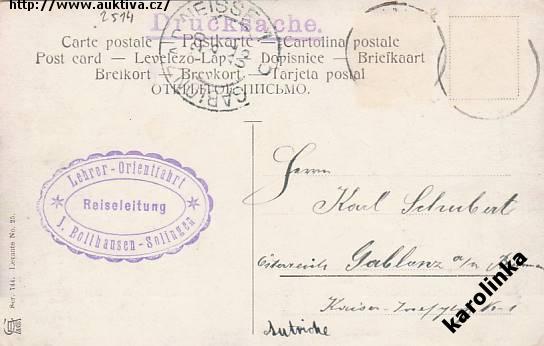 http://www.auktiva.cz/
2514
Drucksache.
Carte postale — Postkarte — Cartolina postale
Post card — Levelező-Lap — Dopisnice — Briefkaart
Breikort — Brevkort — Tarjeta postal
ОТКРЫТОЕ ПИСЬМО.
Lehrer-Orientfahrt
Reiseleitung
J. Bolthausen-Solingen
Herrn
Karl Schubert
Österreich Gablonz a/n
Autriche
Ser. 144. Levante No. 25.
karolinka